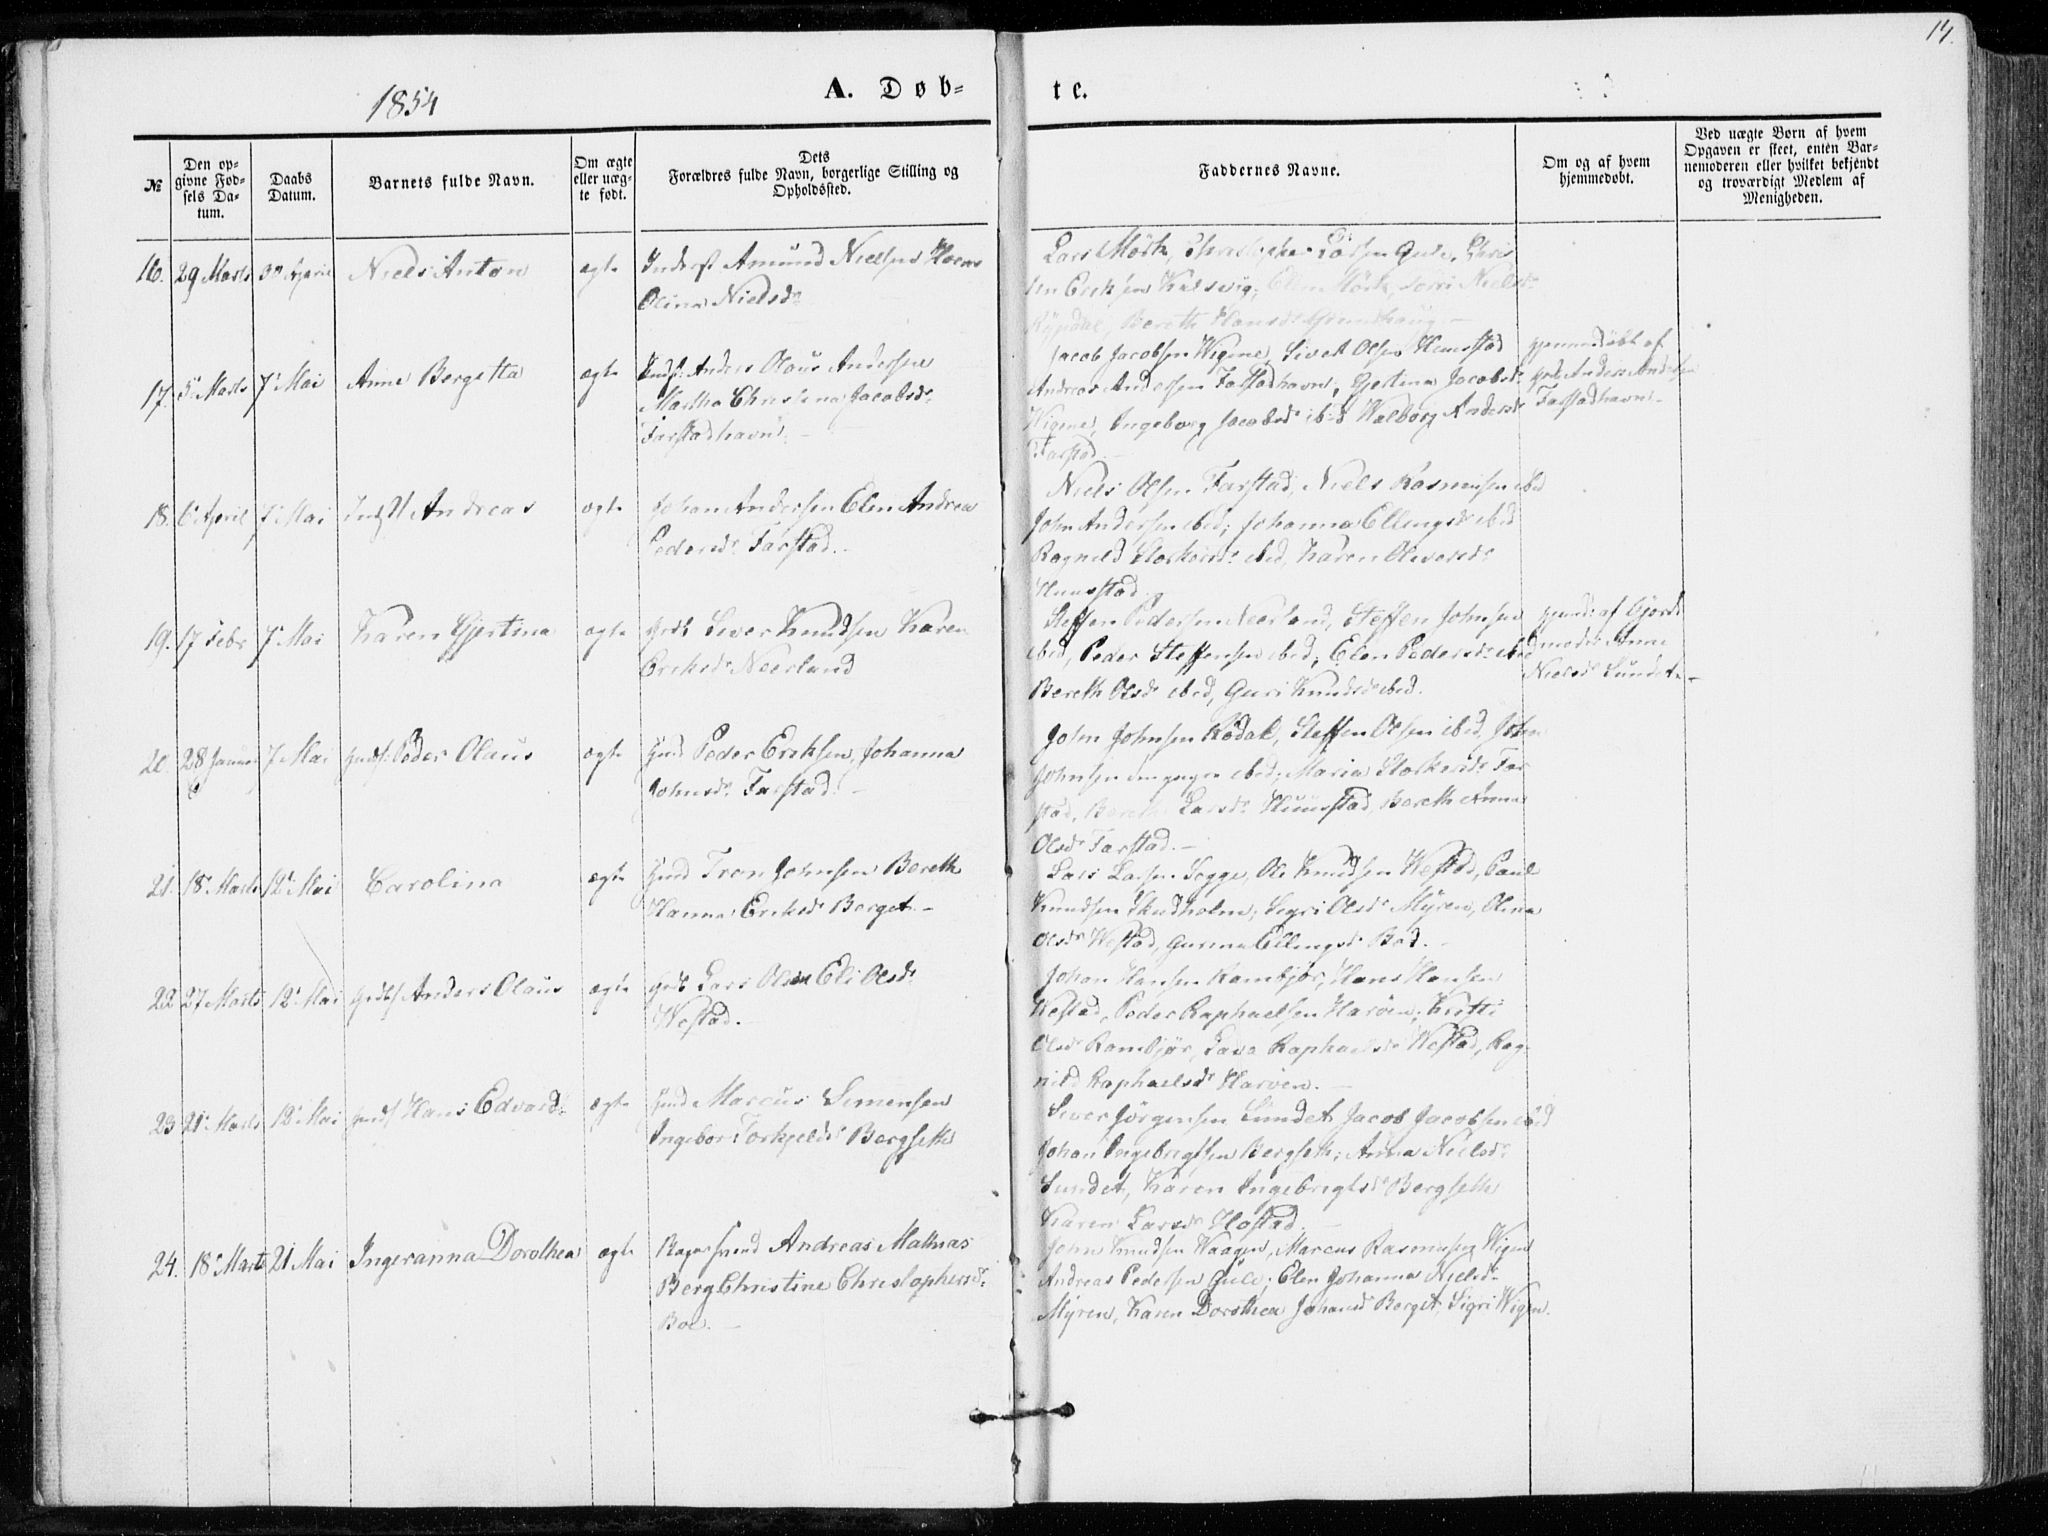 14.
1854
A. Døb-
te.
№
Den op-
givne Fød-
sels Da-
tum.
Daabs
Datum.
Barnets fulde Navn.
Om ægte
eller uæg-
te født.
Dets
Forældres fulde Navn, borgerlige Stilling og
Opholdssted.
Faddernes Navne.
Om og af hvem
hjemmedøbt.
Ved uægte Børn af hvem
Opgaven er skeet, enten Bar-
nemoderen eller hvilket bekjendt
og troværdigt Medlem af
Menigheden.
16. 29 Marts April Niels Anton ægte Amund Nielsen
Olina Nielsdr
Lars Mørk, Christopher Larsen Gule,
Eriksen Elen Mørk, Nielsdr
Bereth Hansdr
17. 5 Marts 7 Mai Anne Bergetta ægte Anders Olaus Andersen
Martha Christina Jacobsdr
Farstadhavn.
Jacob Jacobsen Wigene, Sivert Olsen Hunstad
Andreas Andersen Farstadhavn, Gjertina Jacobsdr
Wigene, Ingeborg Jacobsdr ibid Walborg Andersdr
Farstad.
hjemmedøbt af
Anders Andersen
Farstadhavn.
18. 6 April 7 Mai Andreas ægte Johan Andersen Elen Andrea
Pedersdr Farstad.
Niels Olsen Farstad, Niels Rasmusen ibid
John Andersen ibid, Johanna Ellingsdr ibid
Ragnild ibid, Karen Oliversdr
Hunstad
19. 17 Febr 7 Mai Karen Gjertina ægte Siver Knudsen Karen
Eriksdr Neerland
Steffen Pedersen Neerland, Steffen Johnsen
ibid, Peder Steffensen ibid, Elen Pedersdr ibid
Bereth Olsdr ibid, Guri Knudsdr ibid.
af Gjord-
moder Anne
Nielsdr Sundet.
20. 28 Januar 7 Mai Peder Olaus ægte Peder Eriksen, Johanna
Johnsdr Farstad.
John Johnsen Rødal, Steffen Olsen ibid, John
Johnsen den yngre ibid, Maria Far-
stad, Larsdr Hunstad, Bereth Anna
Olsdr Farstad.
21. 18 Marts 12 Mai Carolina ægte Tron Johnsen Bereth
Hanna Eriksdr Berget.
Lars Larsen Sogge, Ole Knudsen Westad, Paul
Knudsen Skudholm, Sigri Olsdr Myren, Olina
Olsdr Westad, Gurina Ellingsdr Bod.
22. 27 Marts 12 Mai Anders Olaus ægte Lars Olsen Eli Olsdr
Westad.
Johan Hansen Rambjør, Hans Hansen
Westad, Peder Raphaelsen Harøen,
Olsdr Rambjør, Raphaelsdr Westad, Rag-
nild Raphaelsdr Harøen.
23 21 Marts 12 Mai Hans Edvard ægte Marcus Simensen
Ingebor Torkjeldsdr Bergseth
Siver Jørgensen Sundet Jacob Jacobsen ibid
Johan Ingebrigtsen Bergseth, Anna Nielsdr
Sundet, Karen Ingebrigtsdr Bergseth
Karen Larsdr Hostad.
24. 18 Marts 21 Mai Ingeranna Dorothea ægte Bagersvend Andreas Mathias
Berg Christine Christophersdr
Boe.
John Knudsen Waagen, Marcus Rasmusen Wigen
Andreas Pedersen Gule, Elen Johanna Nielsdr
Myren, Karen Dorothea Johansdr Berget, Sigri Wigen.